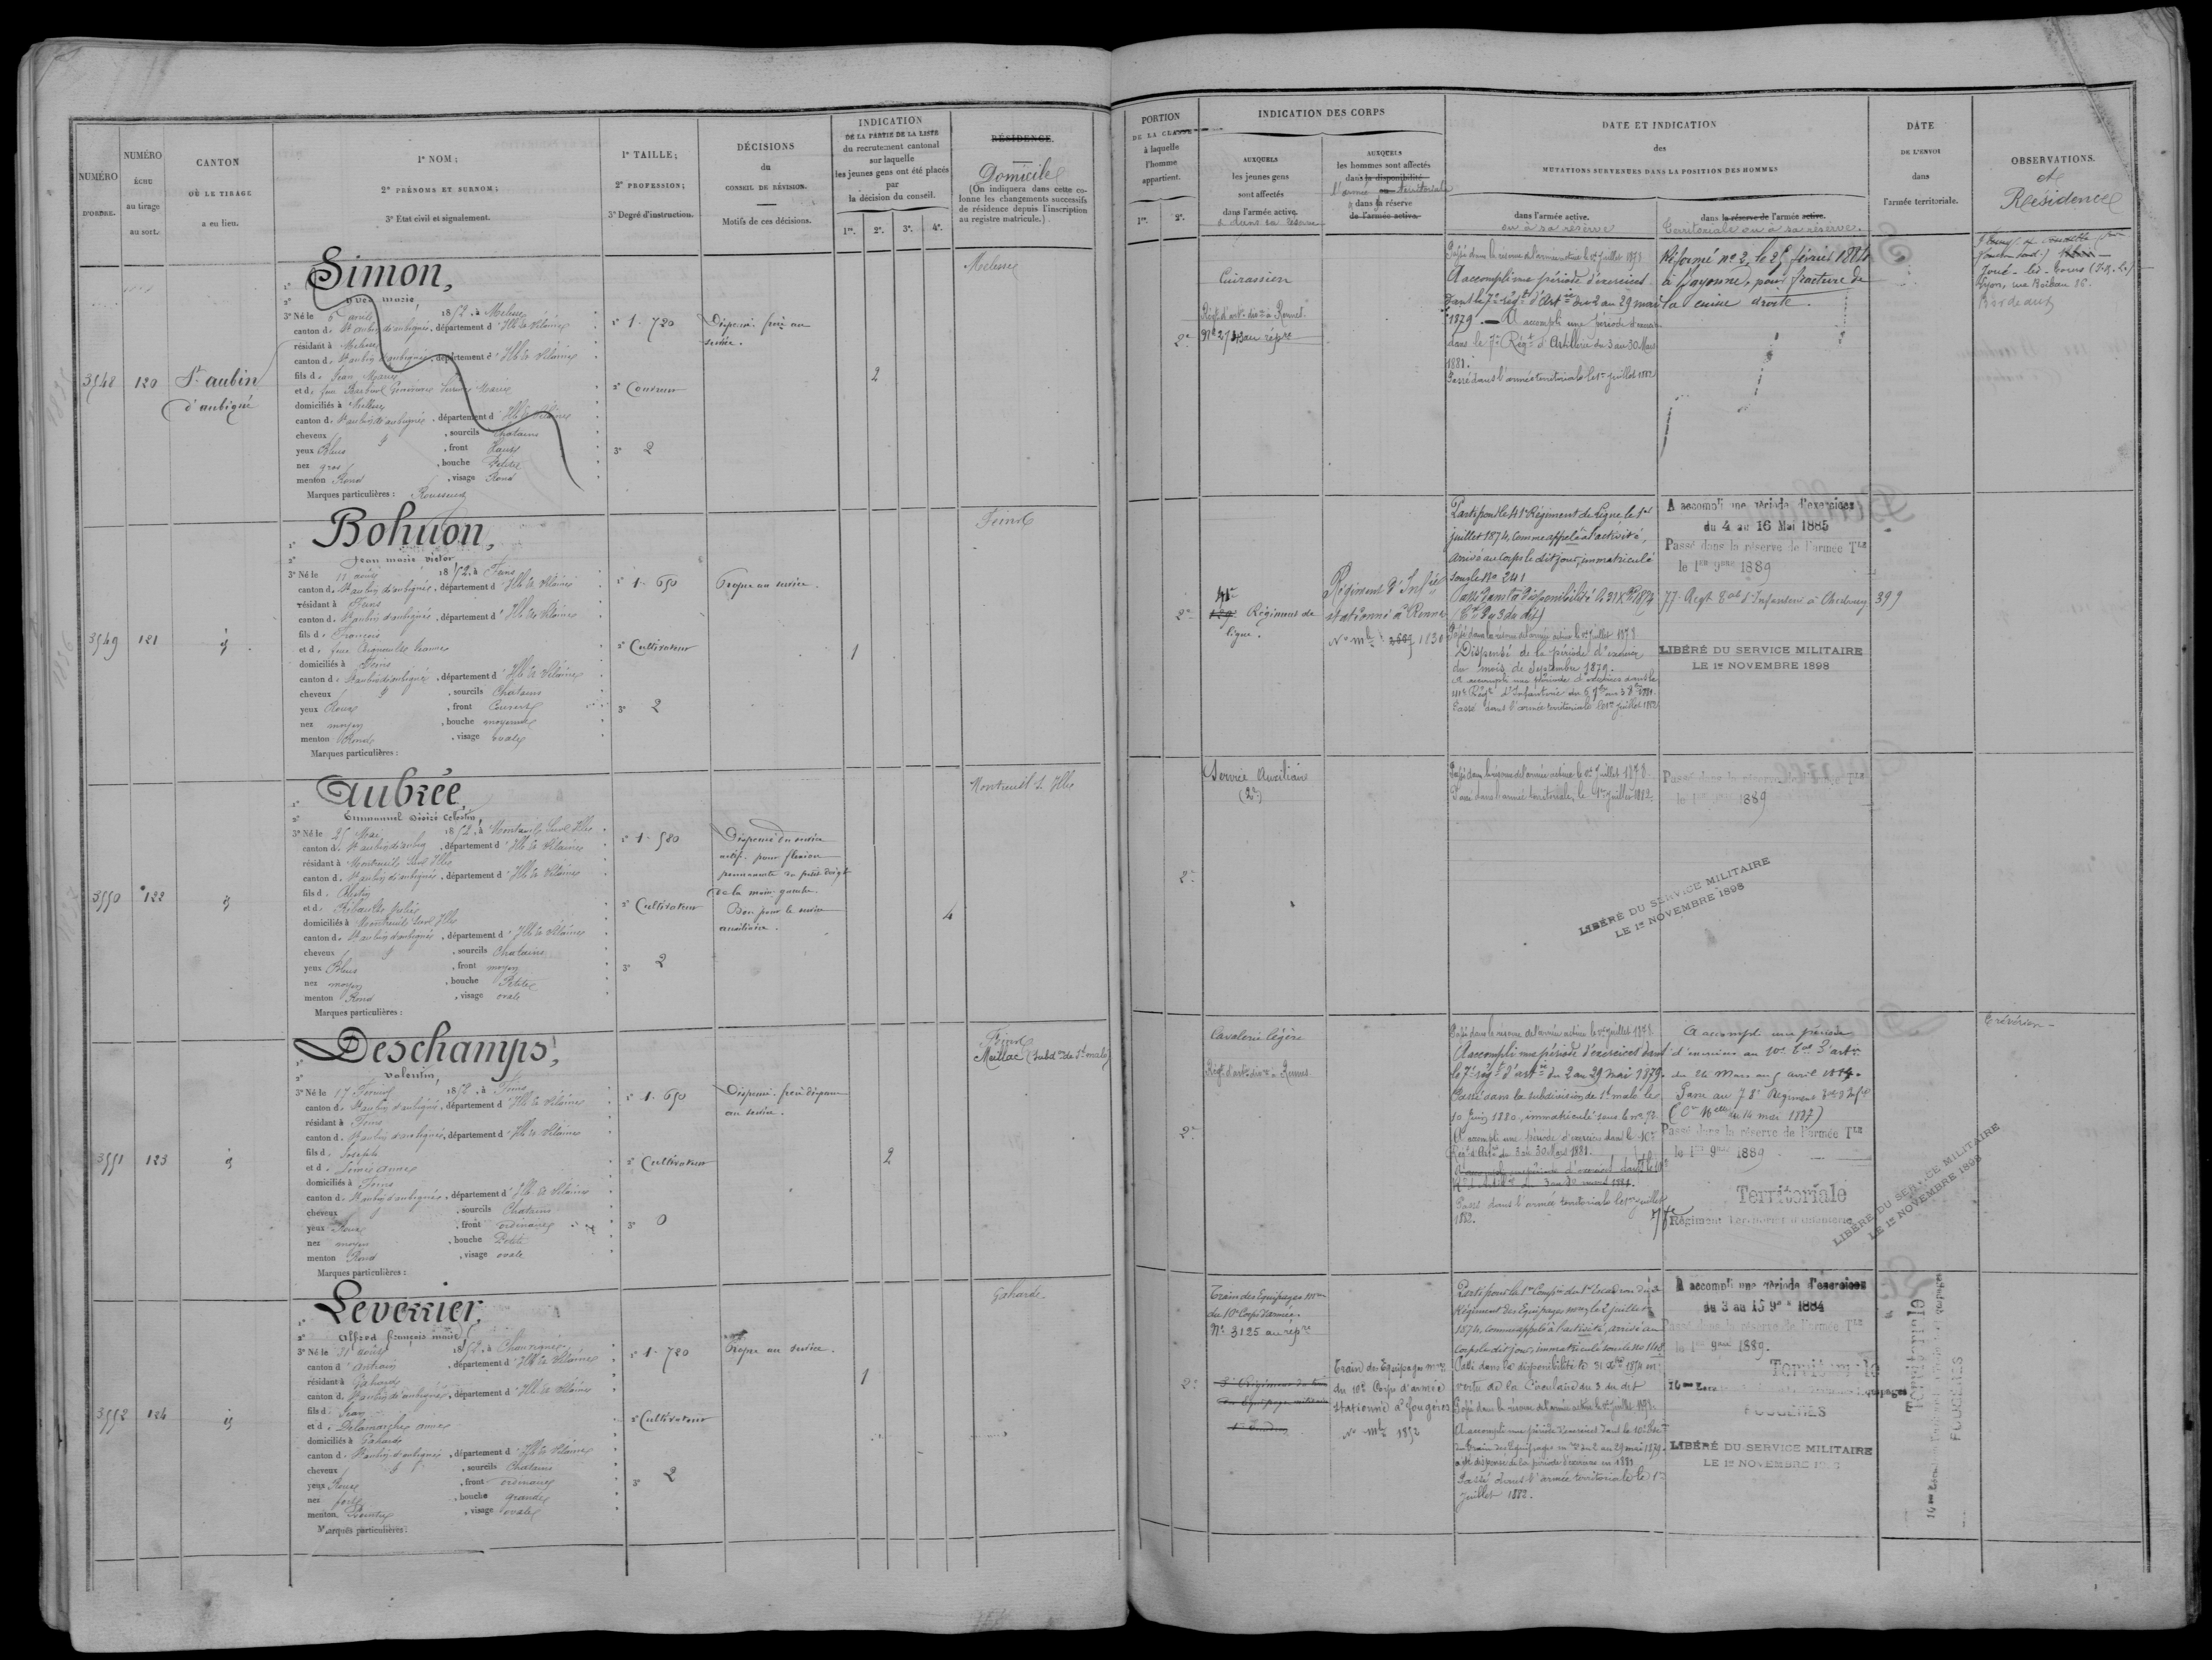 NUMÉRO
D'ORDRE.
NUMÉRO
ÉCHU
au tirage
au sort.
CANTON
OÙ LE TIRAGE
a eu lieu.
1° NOM;
2° PRÉNOMS ET SURNOM;
3° Etat civil et signalement.
1° TAILLE;
2° PROFESSION;
3° Degré d'instruction.
DÉCISIONS
du
CONSEIL DE RÉVISION.
Motifs de ces décisions.
INDICATION
DE LA PARTIE DE LA LISTE
du recrutement cantonal
sur laquelle
les jeunes gens ont été placés
par
la décision du conseil.
1re. 2e. 3e. 4e.
RÉSIDENCE.
Domicile
(On indiquera dans cette co-
lonne les changements successifs
de résidence depuis l'inscription
au registre matricule.)
PORTION
DE LA CLASSE
à laquelle
l'homme
appartient.
1re. 2e.
INDICATION DES CORPS
AUXQUELS
les jeunes gens
sont affectés
dans l'armée active.
& dans sa réserve
AUXQUELS
les hommes sont affectés
dans la disponibilité
l'armée territoriale
& dans sa réserve
de l'armée active.
DATE ET INDICATION
des
MUTATIONS SURVENUES DANS LA POSITION DES HOMMES
dans l'armée active.
ou à sa réserve
dans la réserve de l'armée active.
Territoriale ou à sa réserve.
DATE
DE L'ENVOI
dans
l'armée territoriale.
OBSERVATIONS.
et
Résidence
3548
120
St aubin
d'aubigné
Simon,
Yves marie,
3° Né le 5 avril 1852, à Melesse
canton de St aubin d'aubigné, département d'Ille & Vilaine
résidant à Melesse
canton de St aubin d'aubigné, département d'Ille & Vilaine
fils de Jean Marie
domiciliés à Melesse
canton de St aubin d'aubigné, département d'Ille & Vilaine
cheveux, sourcils Chatains
yeux Bleus, front Haut
nez gros, bouche Petite
menton Rond, visage Rond
Marques particulières : Rousseurs
1° 1.720
3° 2
Dispensé frère au
service.
2
Melesse
2e
Cuirassier
Régt d'art. à Rennes
Passé dans la réserve de l'armée active le 1er Juillet 1878
A accompli une période d'exercices
dans le 7e régt d'Artie du 2 au 29 mai
1879. — A accompli une période d'exercices
dans le 7e Régt d'Artillerie du 3 au 30 Mars
1881.
Passé dans l'armée territoriale le 1er juillet 1882
Réformé n° 2, le 25 février 1884
à Bayonne, pour fracture de
la cuisse droite.
Lyon, rue Boileau 86.
Bordeaux
3549
121
id
Bohuon,
Jean marie victor
3° Né le 11 août 1852, à Feins
canton de St aubin d'aubigné, département d'Ille & Vilaine
résidant à Feins
canton de St aubin d'aubigné, département d'Ille & Vilaine
fils de François
domiciliés à Feins
canton de St aubin d'aubigné, département d'Ille & Vilaine
cheveux, sourcils Chatains
yeux Roux, front Couvert
nez moyen, bouche moyenne
menton Rond, visage ovale
Marques particulières :
1° 1.650
2° Cultivateur
3° 2
Propre au service.
1
Feins
2e
41e
Régiment de
ligne.
Régiment d'Infie
stationné à Rennes
N° mle 1830
Parti pour le 41e Régiment de Ligne le 1er
juillet 1874, comme appelé à l'activité,
arrivé au Corps le dit jour, immatriculé
sous le No 241
Passé dans la disponibilité le 31 Xbre 1874
(Cre du 3 du dit)
Passé dans la réserve de l'armée active le 1er Juillet 1878
Dispensé de la période d'exercice
du mois de Septembre 1879.
A accompli une période d'exercices dans le
41e Régt d'Infanterie
Passé dans l'armée territoriale le 1er juillet 1882
A accompli une période d'exercices
du 4 au 16 Mai 1885
Passé dans la réserve de l'armée Tle
le 1er 9bre 1889
77e Regt d'Infanterie à Cherbourg
399
LIBÉRÉ DU SERVICE MILITAIRE
LE 1er NOVEMBRE 1898
3550
122
id
Aubrée,
Emmanuel Désiré Celestin,
3° Né le 25 Mai 1852, à Montreuil sur Ille
canton de St aubin d'aubigné, département d'Ille & Vilaine
résidant à Montreuil sur Ille
canton de St aubin d'aubigné, département d'Ille & Vilaine
domiciliés à Montreuil sur Ille
canton de St aubin d'aubigné, département d'Ille & Vilaine
cheveux, sourcils Chatains
yeux Bleus, front moyen
nez moyen, bouche Petite
menton Rond, visage ovale
Marques particulières :
1° 1.580
2° Cultivateur
3° 2
Dispensé du service
actif pour flexion
permanente du petit doigt
de la main gauche.
Bon pour le service
auxiliaire.
4
Montreuil s. Ille
2e
Service Auxiliaire
(2e)
Passé dans la réserve de l'armée active le 1er Juillet 1878
Passé dans l'armée territoriale, le 1er Juillet 1882.
Passé dans la réserve de l'armée Tle
le 1er 9bre 1889
LIBÉRÉ DU SERVICE MILITAIRE
LE 1er NOVEMBRE 1898
3551
123
id
Deschamps,
Valentin,
3° Né le 17 Février 1852, à Feins
canton de St aubin d'aubigné, département d'Ille & Vilaine
résidant à Feins
canton de St aubin d'aubigné, département d'Ille & Vilaine
fils de Joseph
domiciliés à Feins
canton de St aubin d'aubigné, département d'Ille & Vilaine
cheveux, sourcils Chatains
yeux Roux, front ordinaire
nez moyen, bouche Petite
menton Rond, visage ovale
Marques particulières :
1° 1.650
2° Cultivateur
3° 0
Dispensé frère dispensé
au service.
2
Feins
Meillac (Subdon de St malo)
2e
Cavalerie légère
Régt d'art. à Rennes
Passé dans la réserve de l'armée active le 1er Juillet 1878
A accompli une période d'exercices dans
le 7e régt d'artie du 2 au 29 mai 1879.
Passé dans la subdivision de St malo le
10 Juin 1880, immatriculé sous le no 92
A accompli une période d'exercices dans le 10e
Régt d'Artie du 3 au 30 Mars 1881.
Passé dans l'armée territoriale le 1er juillet
1882.
A accompli une période
d'exercices au 10e
du 24 Mars au 5 avril
Passé au 78e Régiment
14 mai 1887)
Passé dans la réserve de l'armée Tle
le 1er 9bre 1889
Territoriale
Régiment Territorial d'Infanterie
LIBÉRÉ DU SERVICE MILITAIRE
LE 1er NOVEMBRE 1898
Trévérien
3552
124
id
Leverrier,
Alfred françois marie,
3° Né le 31 août 1852, à Chauvigné
canton d'Antrain, département d'Ille & Vilaine
résidant à Gahard
canton de St aubin d'aubigné, département d'Ille & Vilaine
fils de Jean
et de Delamarche anne
domiciliés à Gahard
canton de St aubin d'aubigné, département d'Ille & Vilaine
cheveux, sourcils Chatains
yeux Roux, front ordinaire
nez fort, bouche grande
menton Pointu, visage ovale
Marques particulières :
1° 1.720
2° Cultivateur
3° 2
Propre au service.
1
Gahard
2e
Train des Equipages mres
du 10e Corps d'armée.
No 3125 au répre
Train des Equipages mres
du 10e Corps d'armée
stationné à Fougères
No mle 1852
Parti pour la 1re Compie du 1er Escadron du
Régiment des Equipages mres le 2 juillet
1874, comme appelé à l'activité, arrivé au
corps le dit jour, immatriculé sous le no
Passé dans la disponibilité le 31 Xbre 1874 en
vertu de la Circulaire du 3 du dit
Passé dans la réserve de l'armée active le 1er Juillet 1878.
A accompli une période d'exercices dans le 10e
du Train des Equipages mres du 2 au 29 mai 1879.
a été dispensé de la période d'exercices en 1881
Passé dans l'armée territoriale le 1er
juillet 1882.
A accompli une période d'exercices
du 3 au 15 9bre 1884
Passé dans la réserve de l'armée Tle
le 1er 9bre 1889.
Territoriale
FOUGÈRES
LIBÉRÉ DU SERVICE MILITAIRE
LE 1er NOVEMBRE
Territoriale
FOUGÈRES